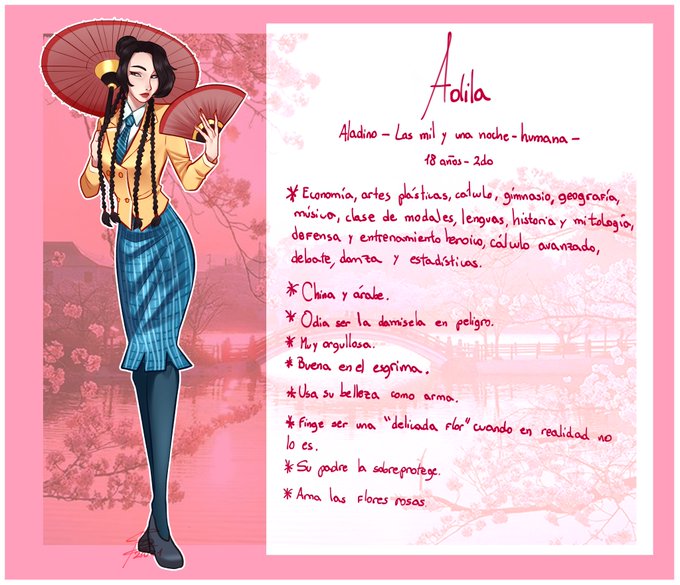 Adila
Aladino - Las mil y una noche - humana -
18 años - 2do
* Economía, artes plásticas, cálculo, gimnasio, geografía,
música, clase de modales, lenguas, historia y mitología,
defensa y entrenamiento heroico, cálculo avanzado,
debate, danza y estadísticas.
* China y árabe.
* Odia ser la damisela en peligro.
* Muy orgullosa.
* Buena en el esgrima.
* Usa su belleza como arma.
* Finge ser una "delicada flor" cuando en realidad no
lo es.
* Su padre la sobreprotege.
* Ama las flores rosas